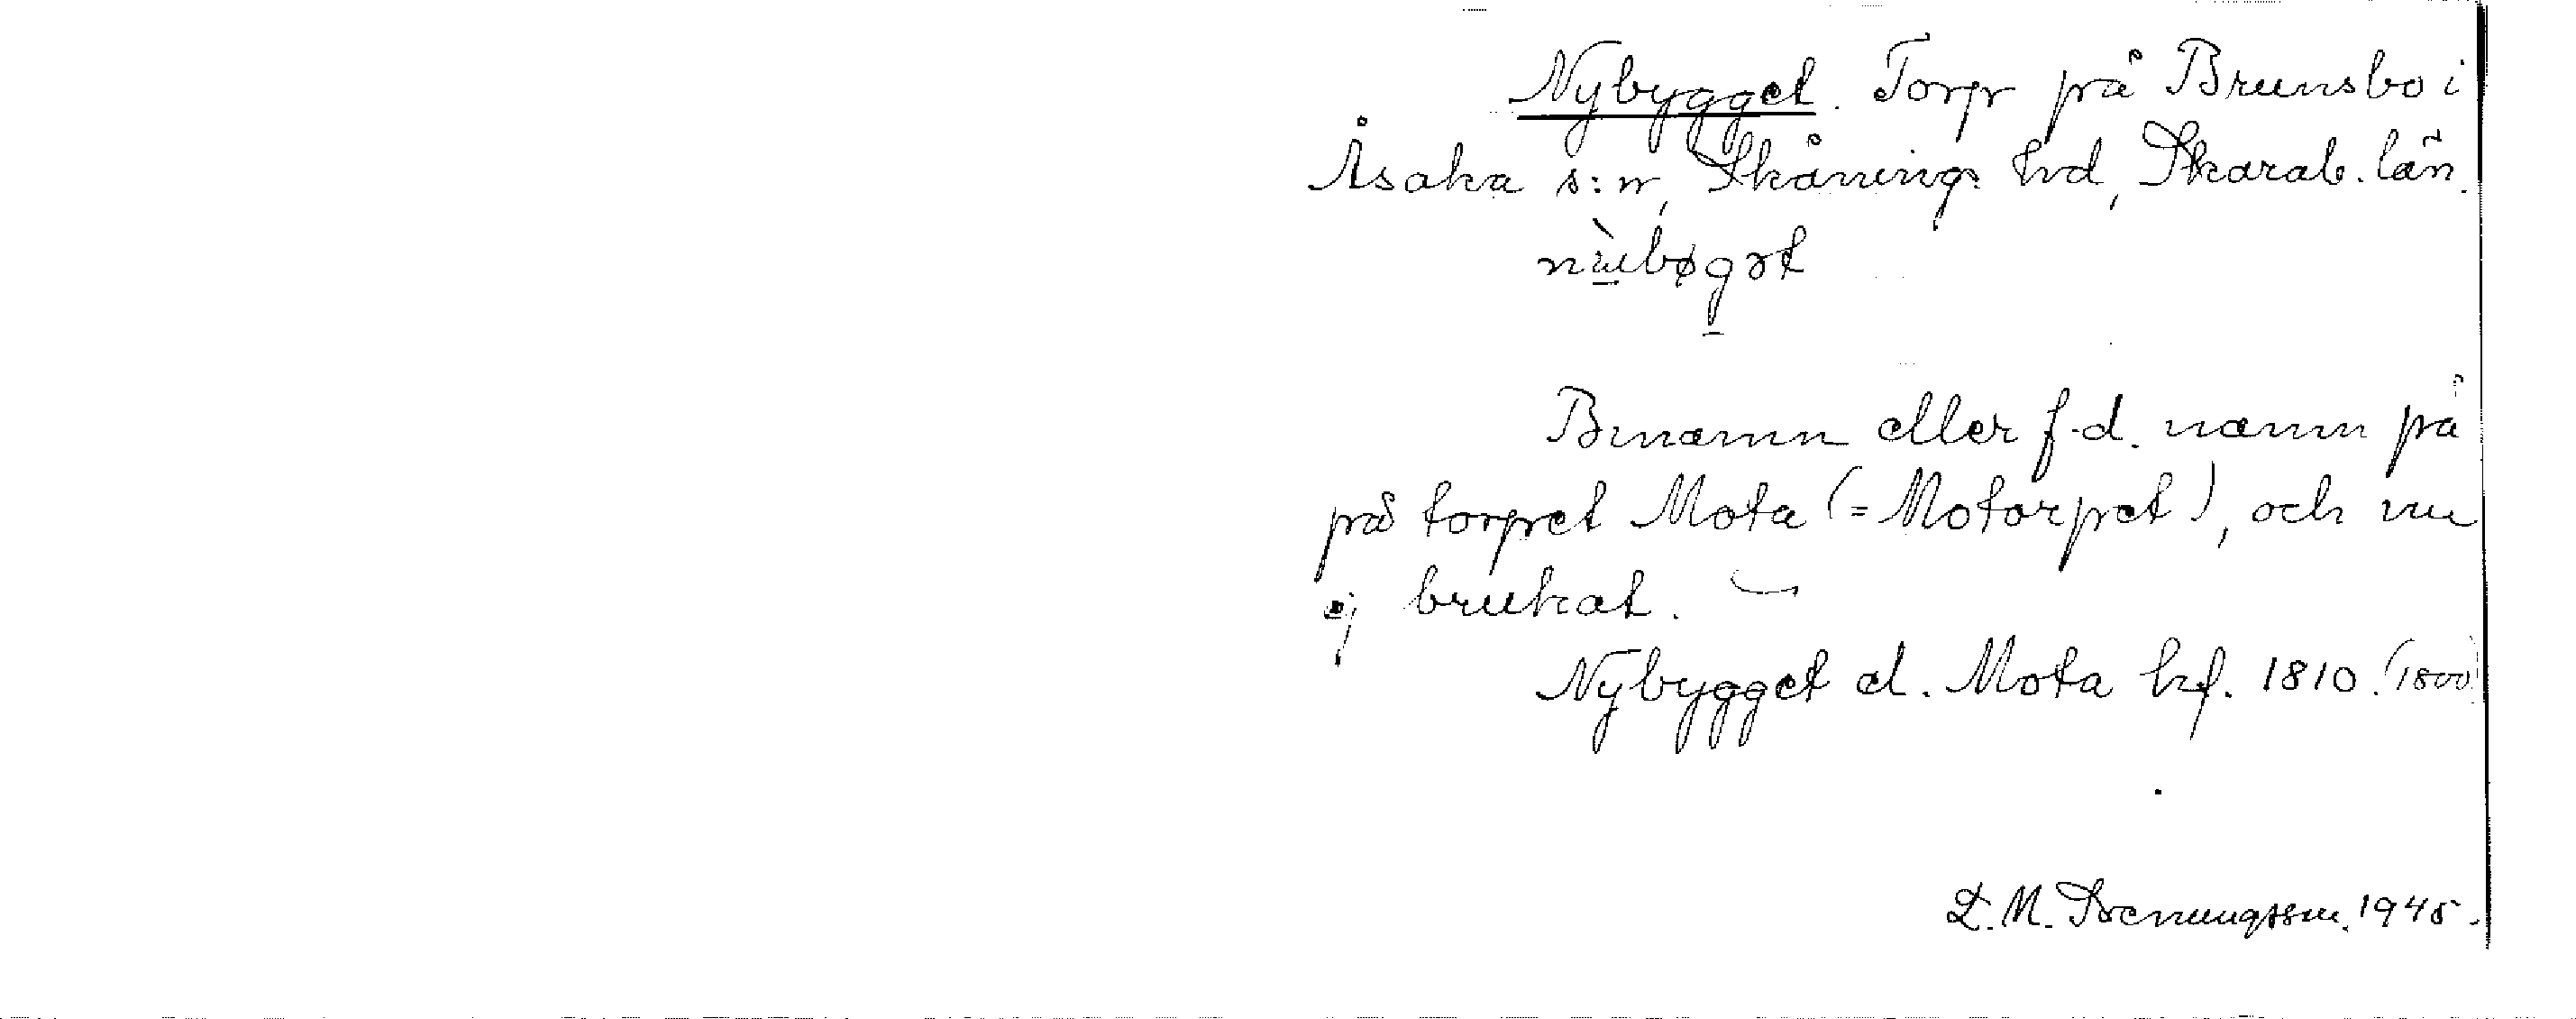 Nybygget. Torp på Brunsbo i
Åsaka s:n, Skånings hd, Skarab. län.
Binamn eller f.d. namn på
på torpet Mota (= Motorpet), och nu
ej brukat.
Nybygget el. Mota hf. 1810. (1800)
L. M. Svenungsson. 1945.